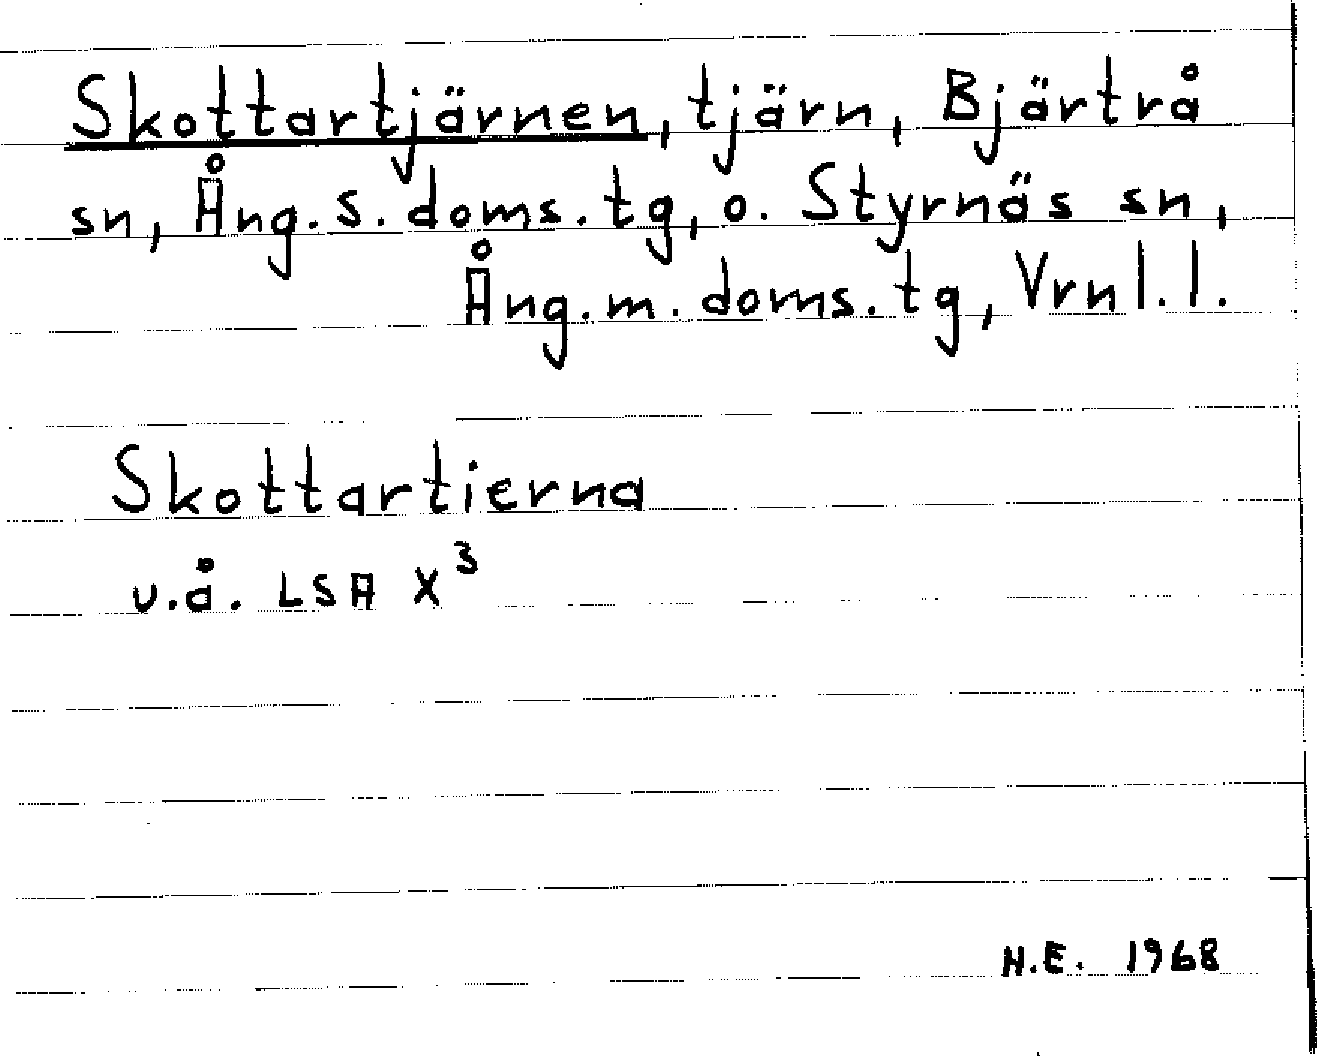 Skottartjärnen, tjärn, Bjärtrå
sn, Ång. s. doms. tg, o. Styrnäs sn,
Ång. m. doms. tg, Vrnl. l.
Skottartierna
u.å. LSA X³
H.E. 1968